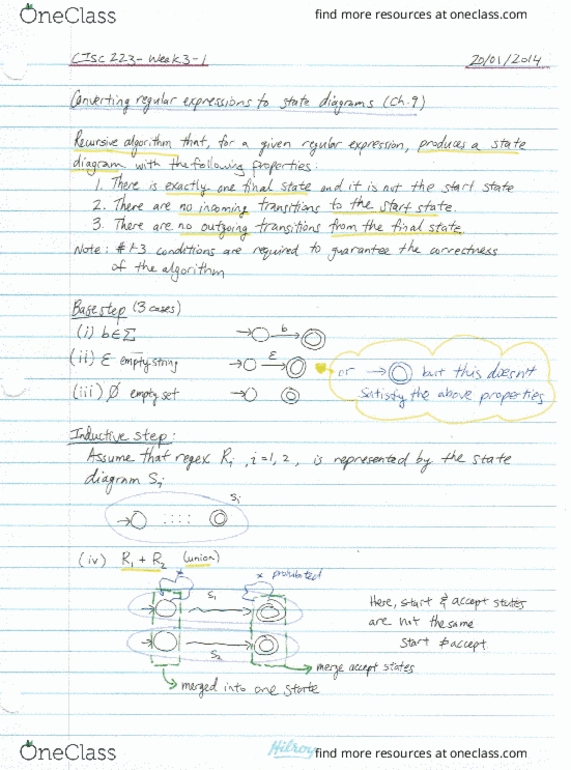 OneClass
find more resources at oneclass.com
CISC 223 - Week 3-1
20/01/2014
Converting regular expressions to state diagrams (Ch. 9)
Recursive algorithm that, for a given regular expression, produces a state
diagram with the following properties:
1. There is exactly one final state and it is not the start state
2. There are no incoming transitions to the start state.
3. There are no outgoing transitions from the final state.
Note: #1-3 conditions are required to guarantee the correctness
of the algorithm
Base step (3 cases)
(i) b∈Σ
b
(ii) ε empty string
ε
or → but this doesn't
satisfy the above properties
(iii) Ø empty set
Inductive step:
Assume that regex Ri, i=1,2, is represented by the state
diagram Si
Si
(iv) R1 + R2 (union)
x
x prohibited
S1
S2
Here, start & accept states
are not the same
start ≠ accept
merge accept states
merged into one state
Hilroy
OneClass
find more resources at oneclass.com